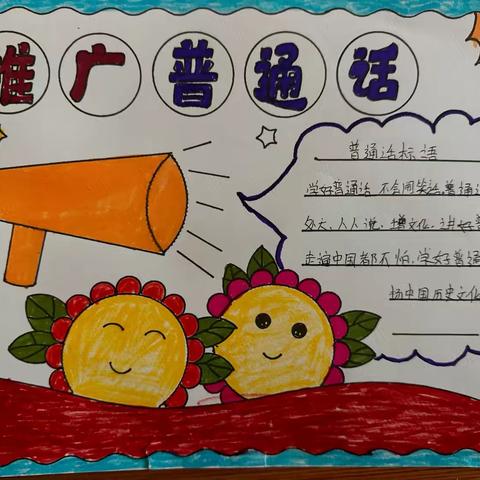 推广普通话
普通话标语
学好普通话 不会闹笑话,普通
处大、人人说、增文化、讲好普
走遍中国都不怕,学好普通
扬中国历史文化